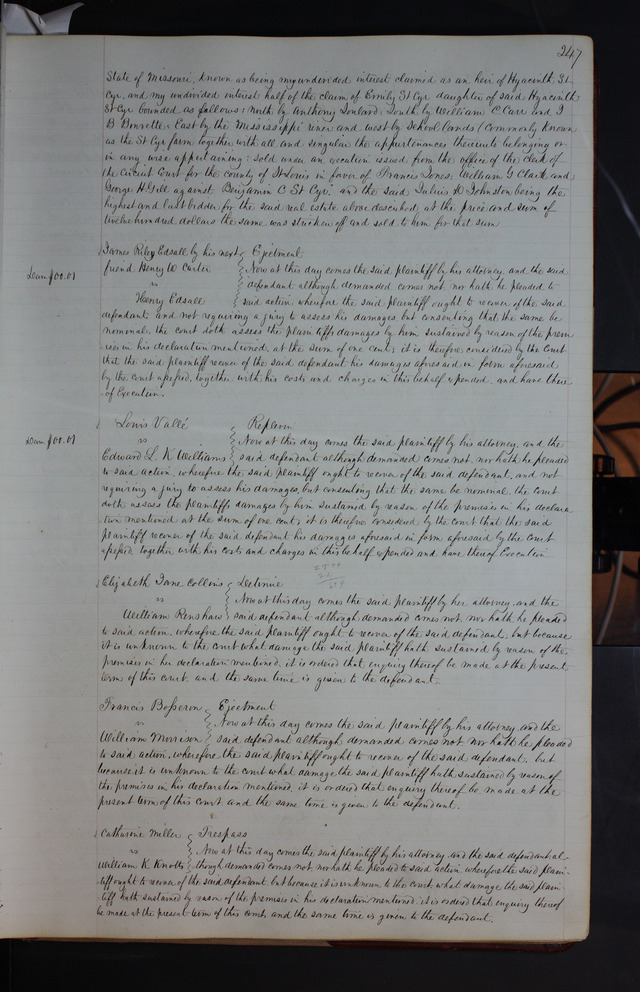 247
State of Missouri, known as being my undivided interest claimed as an heir of Hyacinth St
Cyr, and my undivided interest half of the claim of Emily St Cyr daughter of said Hyacinth
St Cyr bounded as follows: north by Anthony Soulard, South by William C Carr and
B East by the Mississippi river and west by School lands (Commonly known
as the St Cyr farm together with all and singular the appurtenances thereunto belonging or
in any wise appertaining: sold under an execution issued from the office of the clerk of
the Circuit Court for the county of St Louis in favor of Francis Jones, William G Clark and
George H Gill against Benjamin C St Cyr and the said Julius D Johnston being the
highest and last bidder for the said real estate above described, at the price and sum of
twelve hundred dollars the same was stricken off and sold to him for that sum
James Riley Edsall by his next Ejectment
friend Henry W Carter Now at this day comes the said plaintiff by his attorney, and the said
Dam $00.01
vs defendant although demanded comes not nor hath he pleaded to
Henry Edsall said action, wherefore the said plaintiff ought to recover of the said
defendant, and not requiring a jury to assess his damages but consenting that the same be
nominal, the court doth assess the plaintiffs damages by him sustained by reason of the prem
ises in his declaration mentioned, at the sum of one cent; it is therefore considered by the Court
that the said plaintiff recover of the said defendant his damages aforesaid in form aforesaid
by the court assessed, together with his costs and charges in this behalf expended, and have there
of Execution.
Louis Vallé Replevin
vs Now at this day comes the said plaintiff by his attorney, and the
Dam $00.01
Edward L. K Williams said defendant although demanded comes not nor hath he pleaded
to said action, wherefore the said plaintiff ought to recover of the said defendant, and not
requiring a jury to assess his damages, but consenting that the same be nominal, the court
doth assess the plaintiffs damages by him sustained by reason of the premises in his declara
tion mentioned at the sum of one cent; it is therefore considered by the court that the said
plaintiff recover of the said defendant his damages aforesaid in form aforesaid by the Court
assessed together with his costs and charges in this behalf expended and have thereof Execution
Elizabeth Jane Collins Detinue
vs Now at this day comes the said plaintiff by her attorney, and the
William Renshaw said defendant although demanded comes not, nor hath he pleaded
to said action, wherefore the said plaintiff ought to recover of the said defendant, but because
it is unknown to the court what damage the said plaintiff hath sustained by reason of the
premises in her declaration mentioned, it is ordered that enquiry thereof be made at the present
term of this court and the same time is given to the defendant.
Francis Bosseron Ejectment
vs Now at this day comes the said plaintiff by his attorney, and the
William Morrison said defendant although demanded comes not, nor hath he pleaded
to said action, wherefore the said plaintiff ought to recover of the said defendant, but
because it is unknown to the court what damage the said plaintiff hath sustained by reason of
the premises in his declaration mentioned, it is ordered that enquiry thereof be made at the
present term of this court and the same time is given to the defendant.
Catharine Miller Trespass
vs Now at this day comes the said plaintiff by his attorney and the said defendant al
William K Knotts though demanded comes not nor hath he pleaded to said action wherefore the said plain
tiff ought to recover of the said defendant but because it is unknown to the court what damage the said plain
tiff hath sustained by reason of the premises in his declaration mentioned, it is ordered that enquiry thereof
be made at the present term of this court, and the same time is given to the defendant.